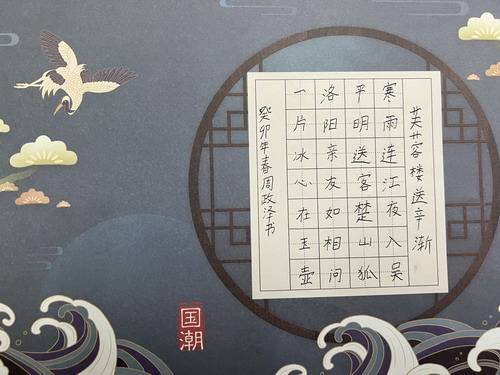 芙蓉楼送辛渐
寒雨连江夜入吴
平明送客楚山狐
洛阳亲友如相问
一片冰心在玉壶
癸卯年春周政泽书
国潮